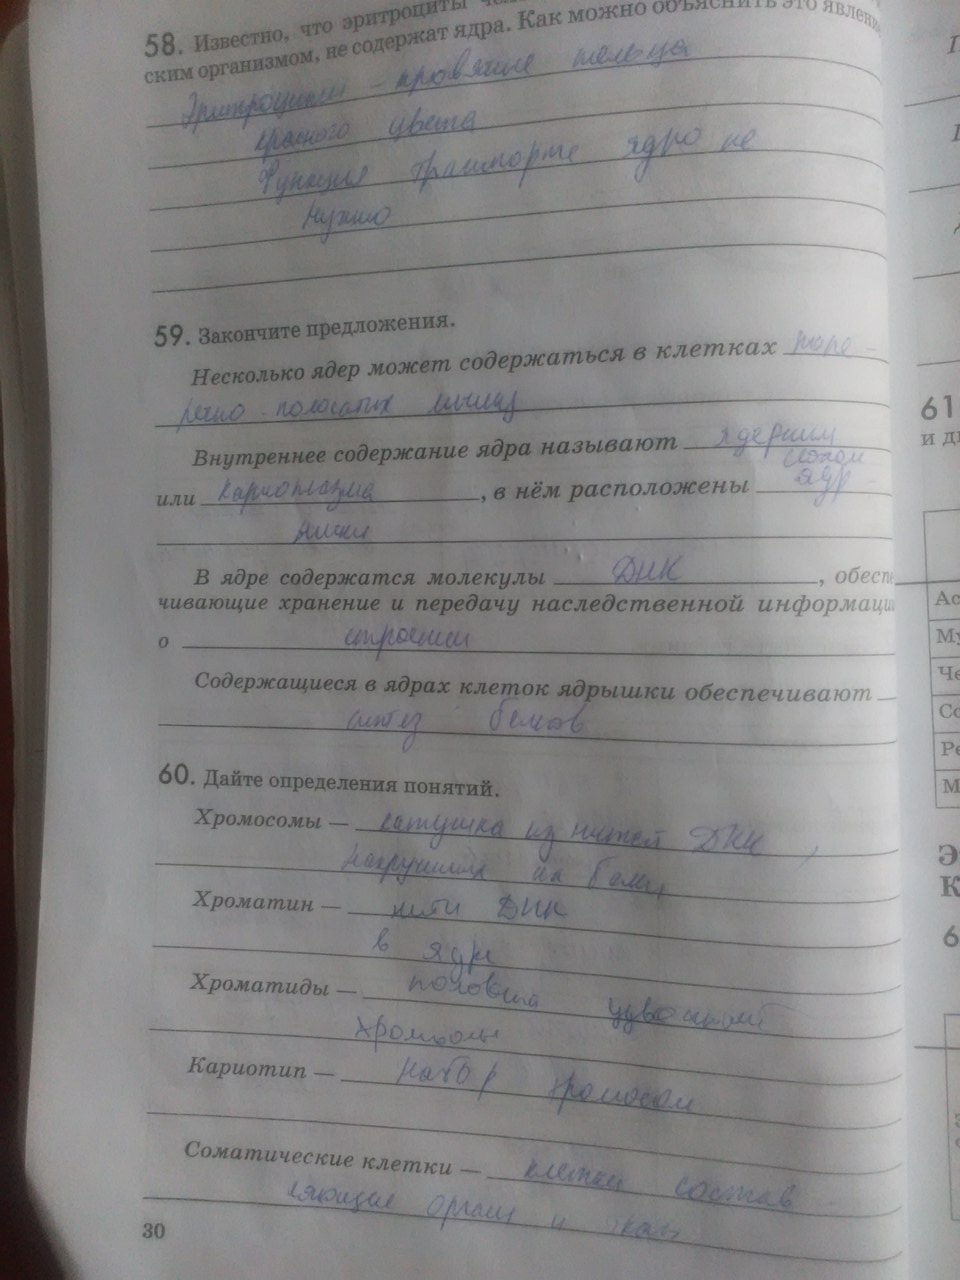 58. Известно, что эритроциты
ским организмом, не содержат ядра. Как можно объяснить это явлени
Эритроциты - кровяные тельца
красного цвета
Функция транспорте ядро не
нужно
59. Закончите предложения.
Несколько ядер может содержаться в клетках попе-
речно-полосатых мышц
Внутреннее содержание ядра называют ядерным
соком
или кариоплазма, в нём расположены ядр-
ышки
В ядре содержатся молекулы ДНК, обеспе
чивающие хранение и передачу наследственной информации
о строении
Содержащиеся в ядрах клеток ядрышки обеспечивают
синтез белков
60. Дайте определения понятий.
Хромосомы — катушка из нитей ДНК,
накрученных на белки
Хроматин — нити ДНК
в ядре
Хроматиды — половина удвоенной
хромосомы
Кариотип — набор хромосом
Соматические клетки — клетки состав-
ляющие органы и ткань
30
61
и д
Ас
Му
Че
Со
Ре
М
Э
К
6